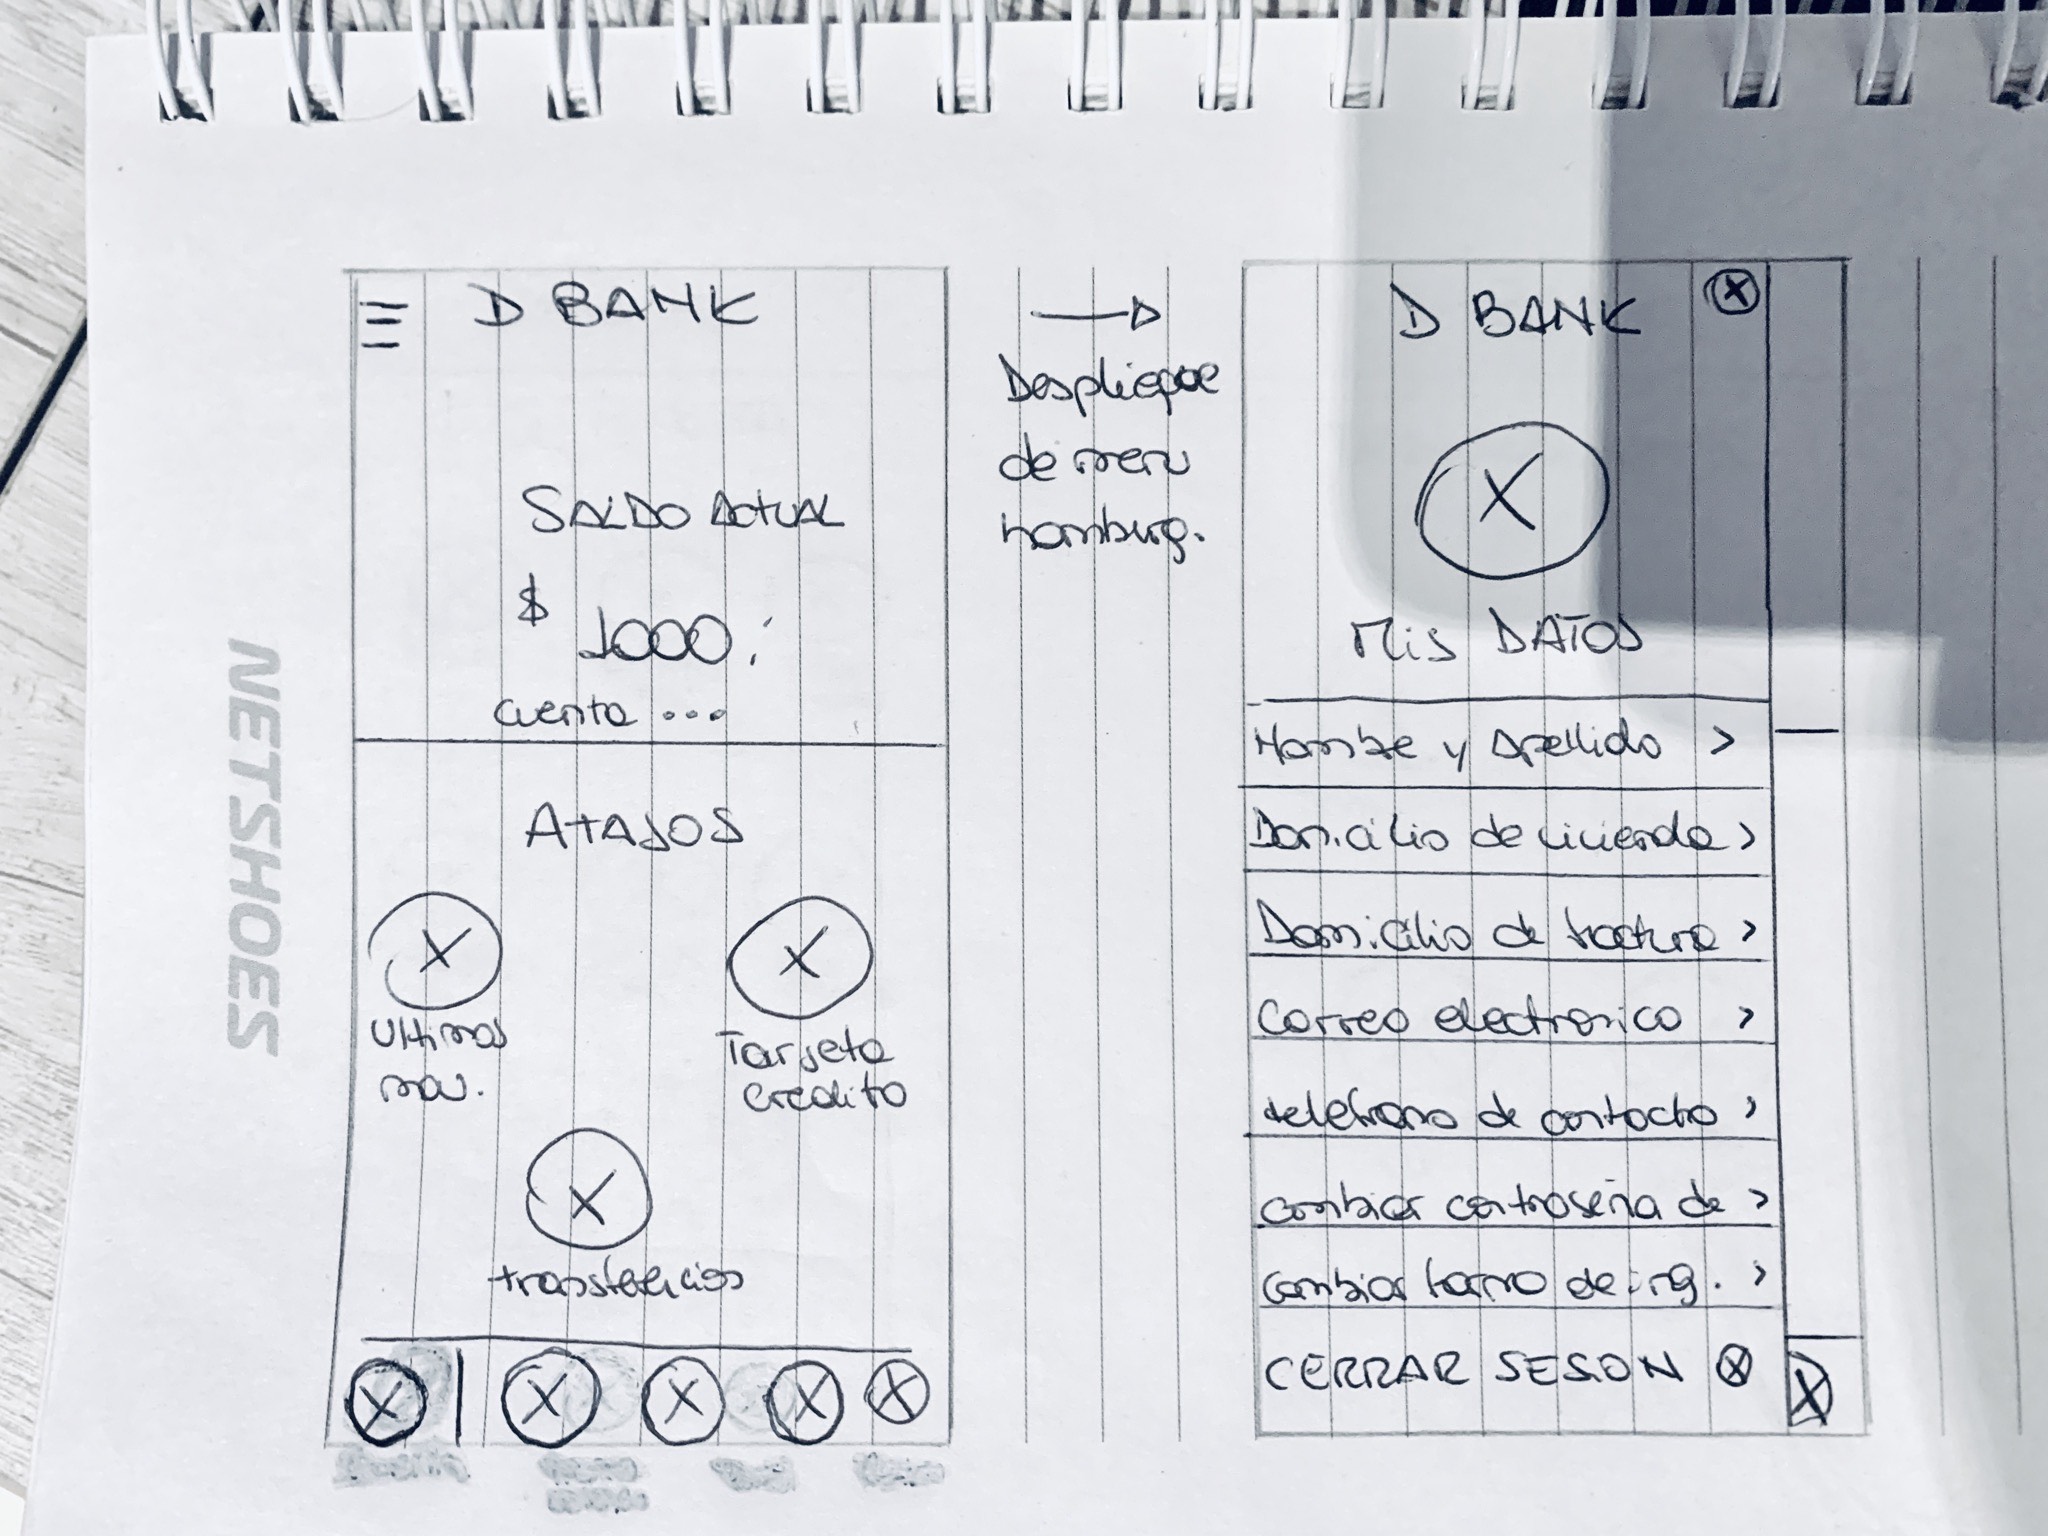 D BANK
SALDO ACTUAL
$ 1000
cuenta ...
ATAJOS
Ultimos
mov.
Tarjeta
credito
Despliegue
de menu
hamburg.
D BANK
Mis DATOS
Nombre y Apellido >
Domicilio de vivienda >
Domicilio de factura >
Correo electronico >
telefono de contacto >
cambiar contraseña de >
cambiar forma de ing. >
CERRAR SESION
NETSHOES